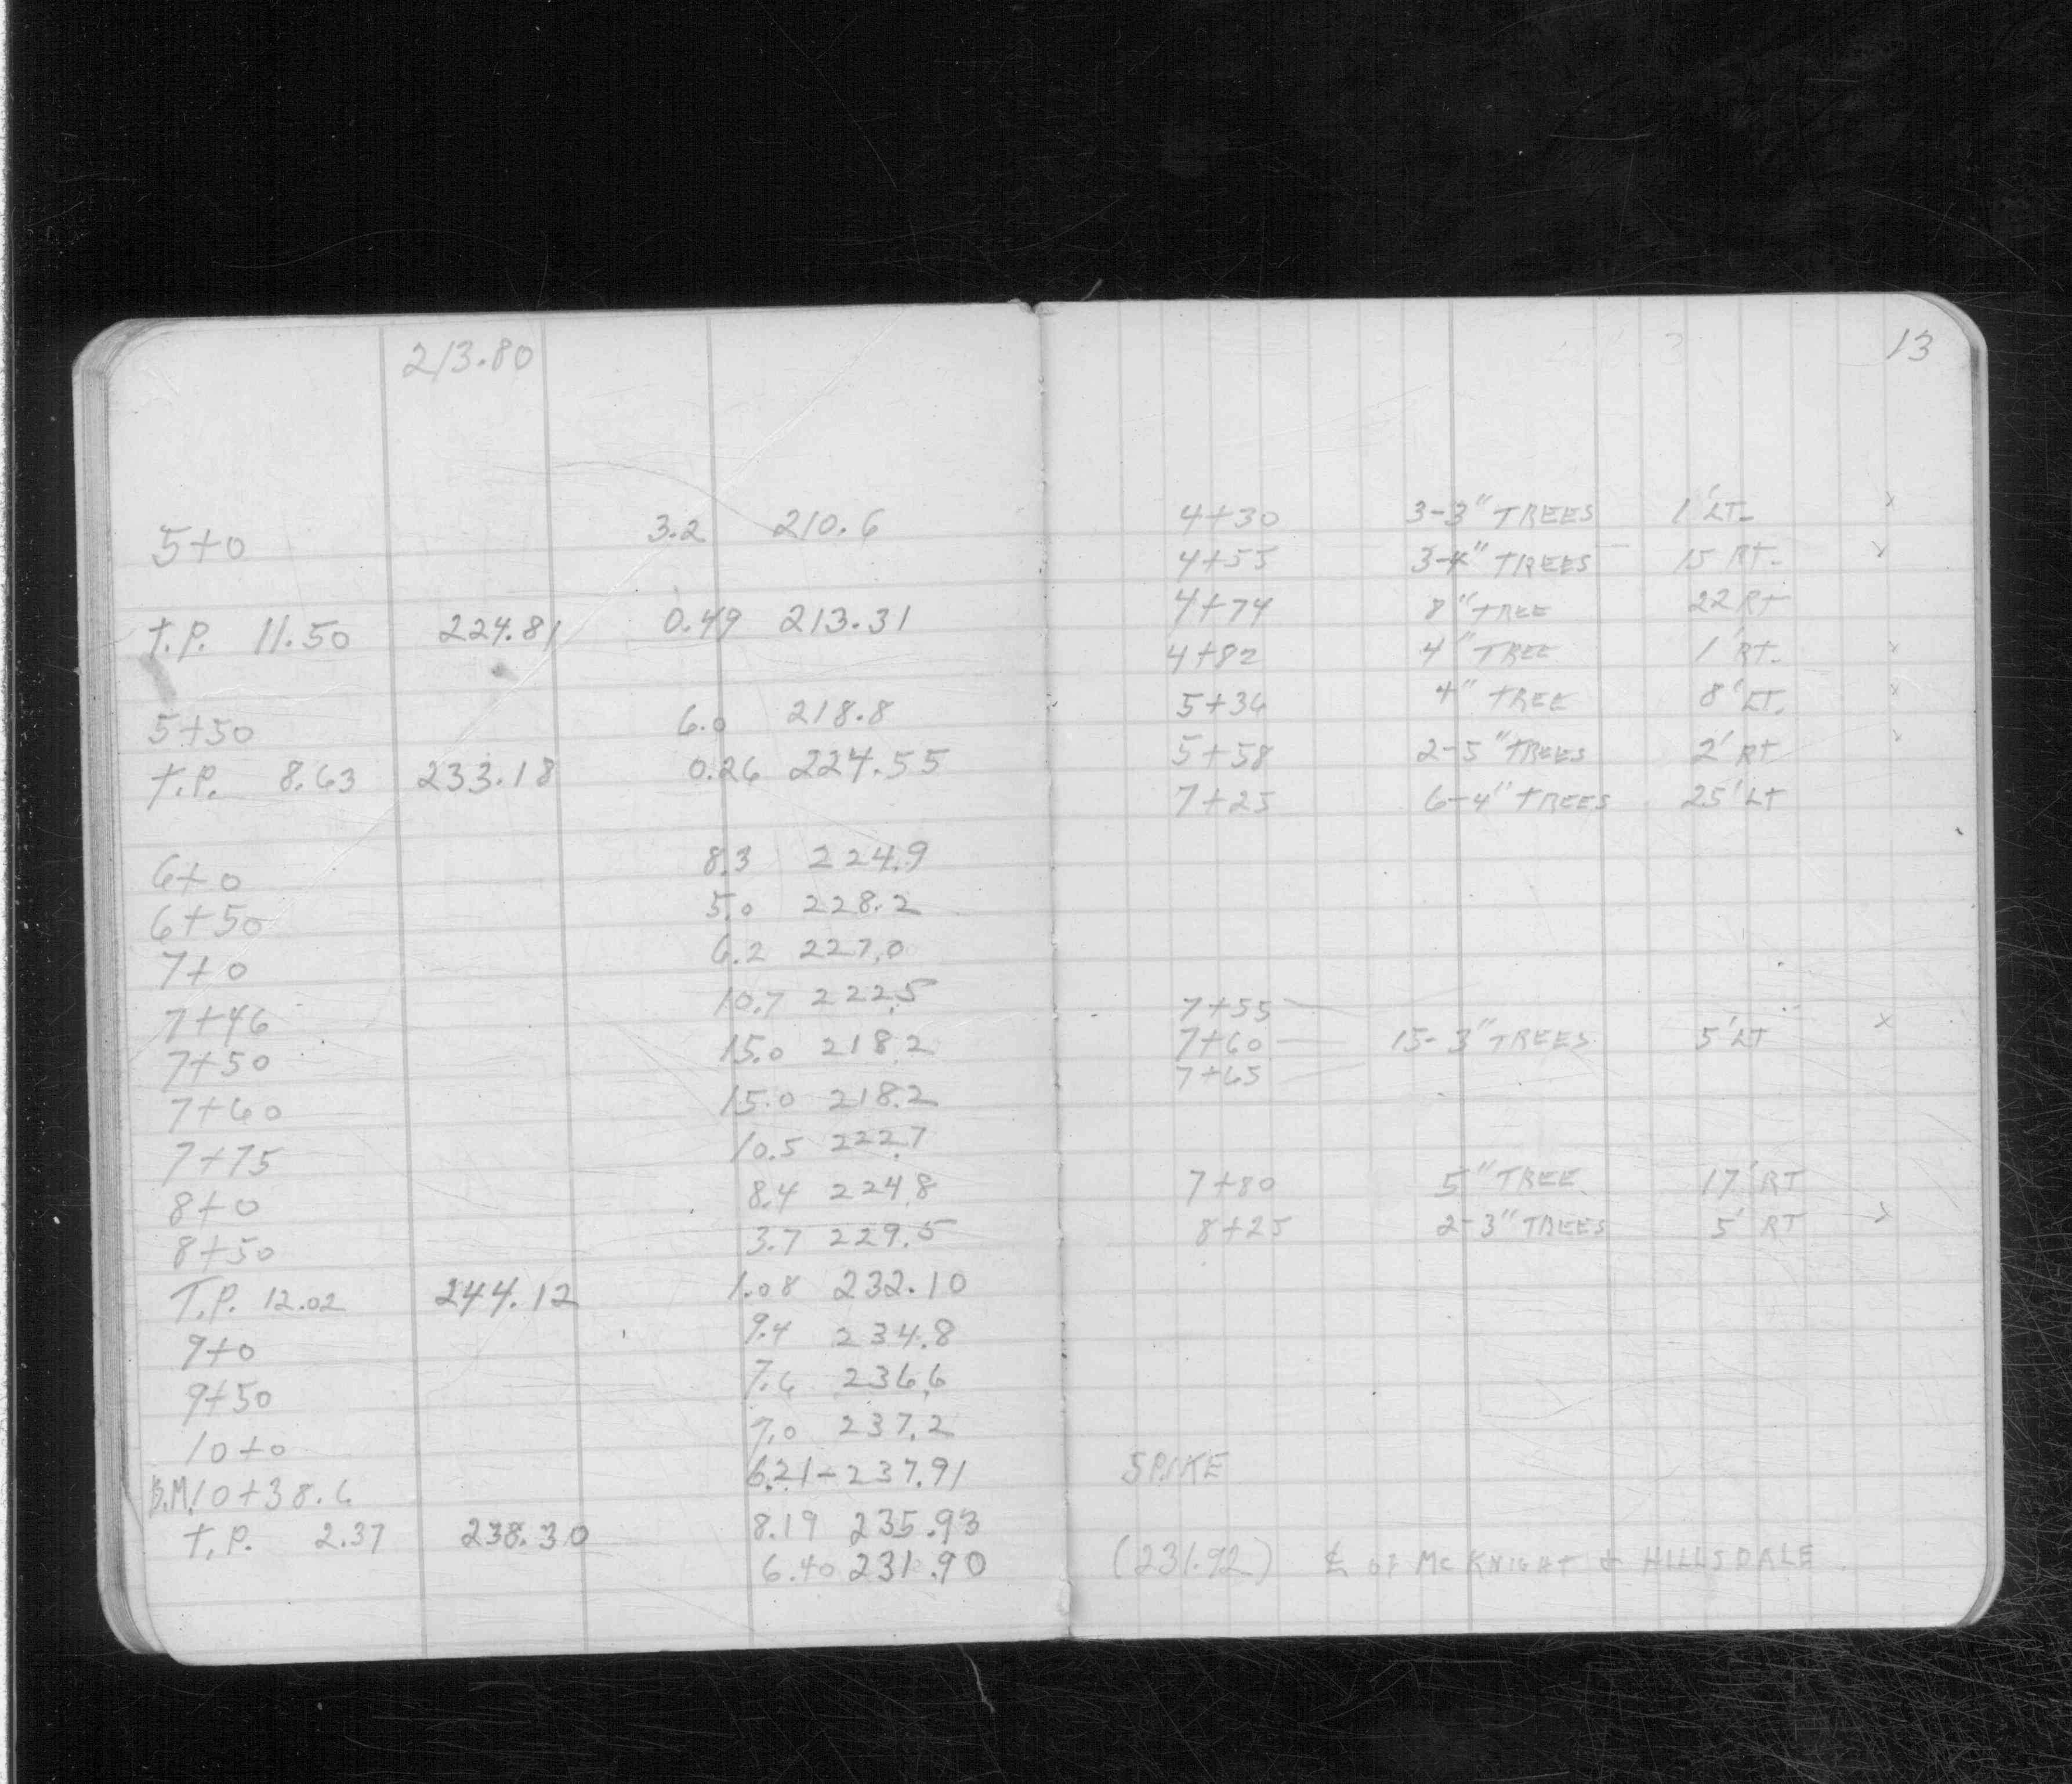 213.80
5+0 3.2 210.6
T.P. 11.50 224.81 0.49 213.31
5+50 6.0 218.8
T.P. 8.63 233.18 0.26 224.55
6+0 8.3 224.9
6+50 5.0 228.2
7+0 6.2 227.0
7+46 10.7 222.5
7+50 15.0 218.2
7+60 15.0 218.2
7+75 10.5 222.7
8+0 8.4 224.8
8+50 3.7 229.5
T.P. 12.02 244.12 1.08 232.10
9+0 9.4 234.8
9+50 7.6 236.6
10+0 7.0 237.2
B.M. 10+38.6 6.21- 237.91
T.P. 2.37 238.30 8.19 235.93
6.40 231.90
13
4+30 3-3" TREES 1' LT. x
4+55 3-4" TREES 15 RT. x
4+74 8" TREE 22 RT
4+82 4" TREE 1' RT. x
5+36 4" TREE 8' LT. x
5+58 2-5" TREES 2' RT x
7+25 6-4" TREES 25' LT
7+55
7+60 15-3" TREES 5' LT x
7+65
7+80 5" TREE 17' RT
8+25 2-3" TREES 5' RT x
SPIKE
(231.92) ℄ of McKNIGHT & HILLSDALE